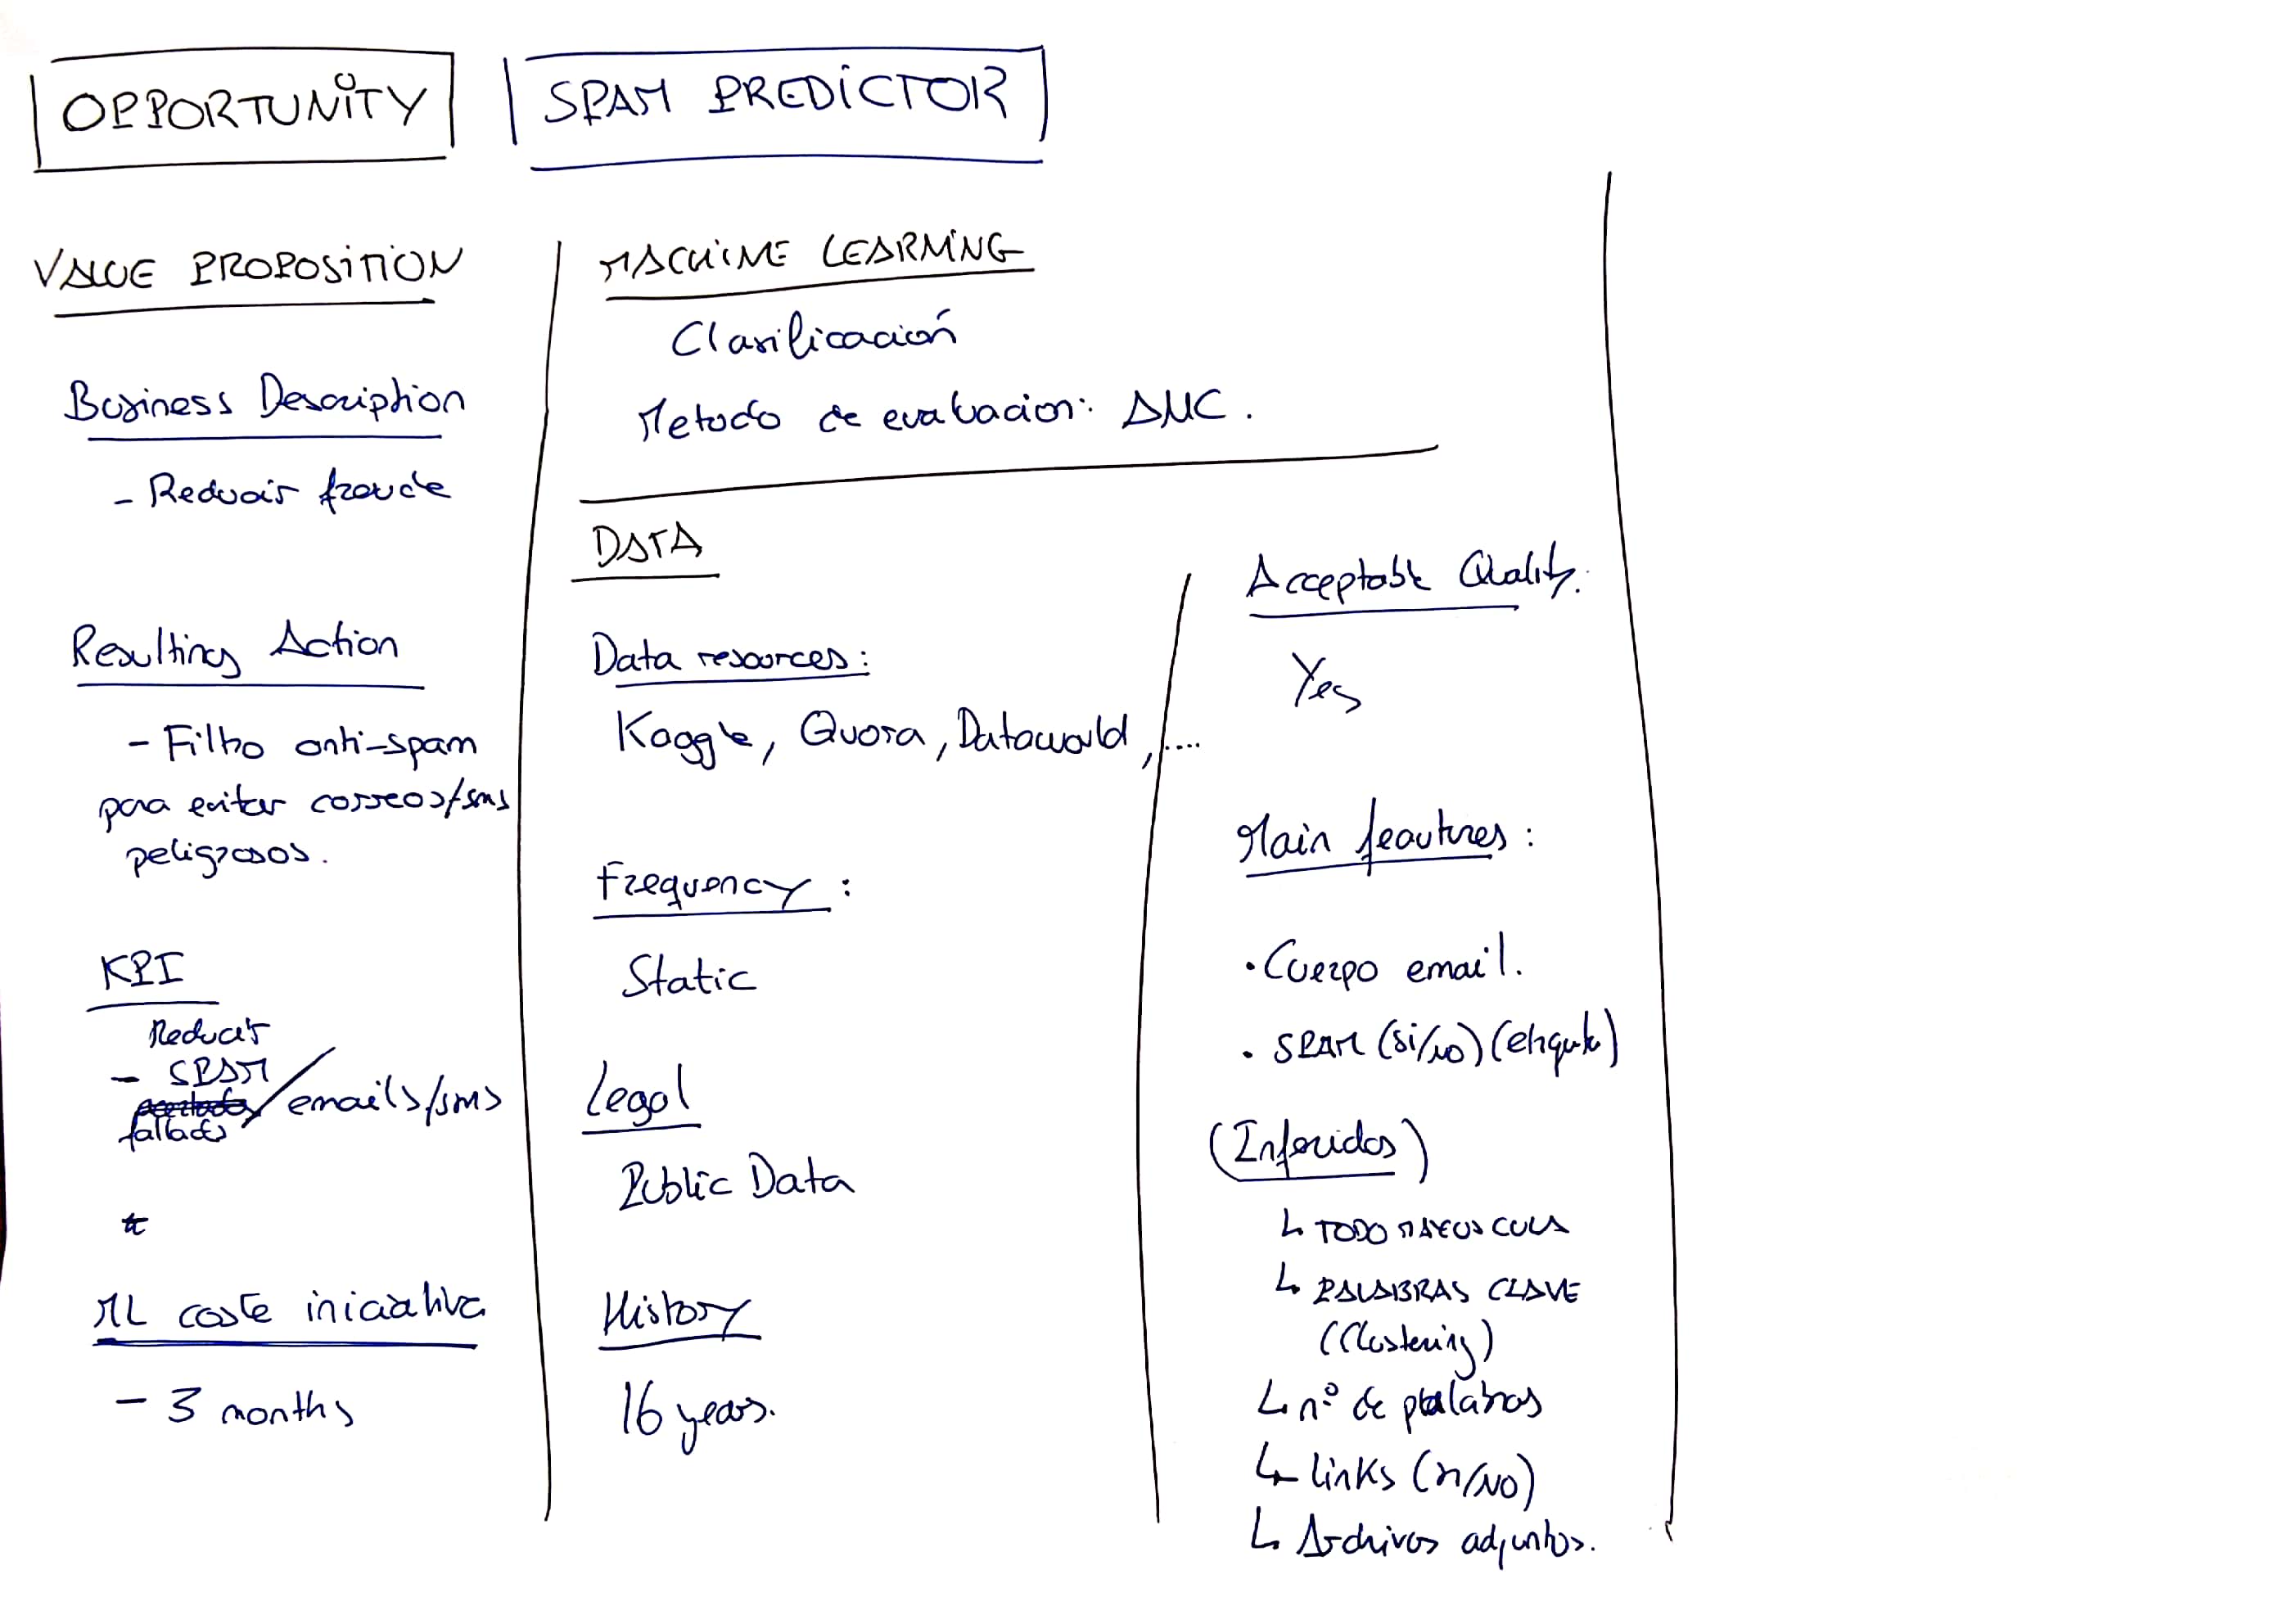 OPPORTUNITY
SPAM PREDICTOR
VALUE PROPOSITION
Business Description
- Reducir fraude
Resulting Action
- Filtro anti-spam
para evitar correos/sms
peligrosos.
KPI
Reducir
- SPAM
fallados / emails/sms
ML coste iniciativa
- 3 months
MACHINE LEARNING
Clasificación
Metodo de evaluacion: AUC.
DATA
Data resources:
Kaggle, Quora, Dataworld, ....
Frequency:
Static
Legal
Public Data
History
16 years.
Acceptable Quality.
Yes
Main feautures:
• Cuerpo email.
• SPAM (si/no) (etiqueta)
(Inferidos)
↳ TODO MAYUSCULA
↳ PALABRAS CLAVE
(Clustering)
↳ nº de palabras
↳ links (si/NO)
↳ Archivos adjuntos.